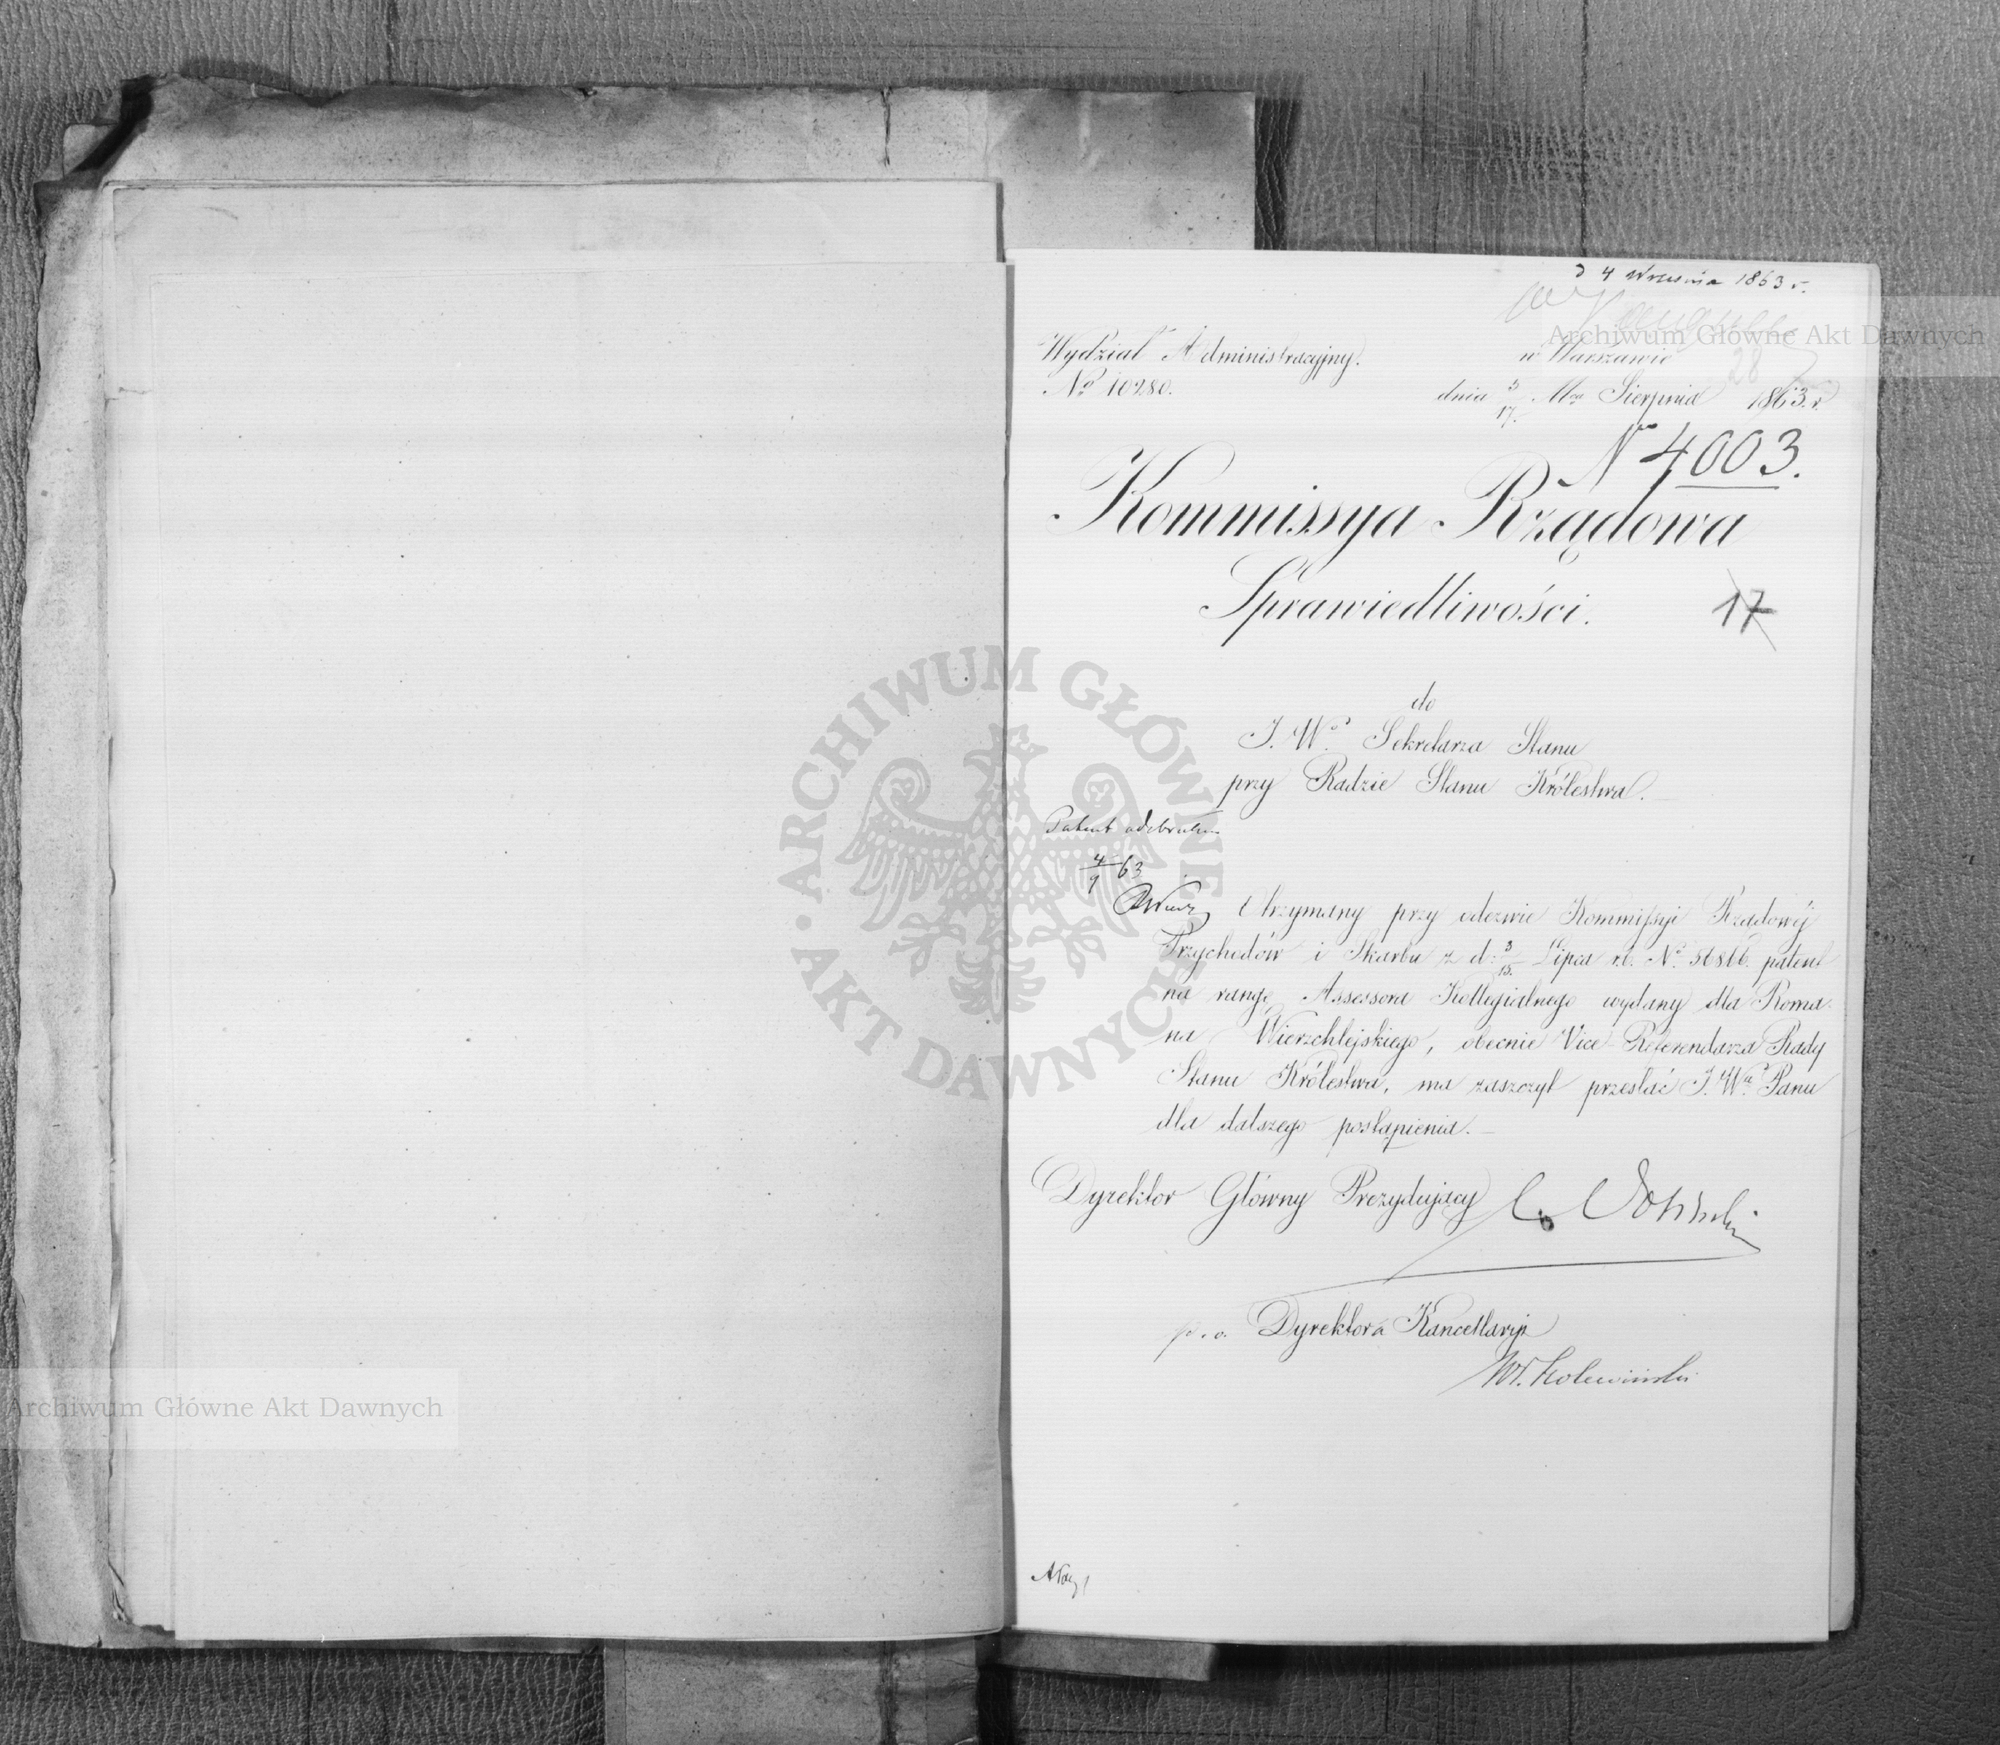 d 4 Września 1863 r.
Wydział Administracyjny.
w Warszawie
No 10280.
dnia 5/17. Mca Sierpnia 1863. r.
No 4003.
Kommissya Rządowa
Sprawiedliwości.
17
do
J. Wo Sekretarza Stanu
przy Radzie Stanu Królestwa.
Patent odebrałem
4/9 63
Otrzymany przy odezwie Kommissyi Rządowéj
Przychodów i Skarbu z d: 3/15. Lipca r.b. No 56866. patent
na rangę Assessora Kollegialnego wydany dla Roma-
na Wierzchlejskiego, obecnie Vice-Referendarza Rady
Stanu Królestwa, ma zaszczyt przesłać J. Wu Panu
dla dalszego postąpienia.
Dyrektor Główny Prezydujący
p.o. Dyrektora Kancellaryi
Archiwum Główne Akt Dawnych
ARCHIWUM GŁÓWNE AKT DAWNYCH
Archiwum Główne Akt Dawnych